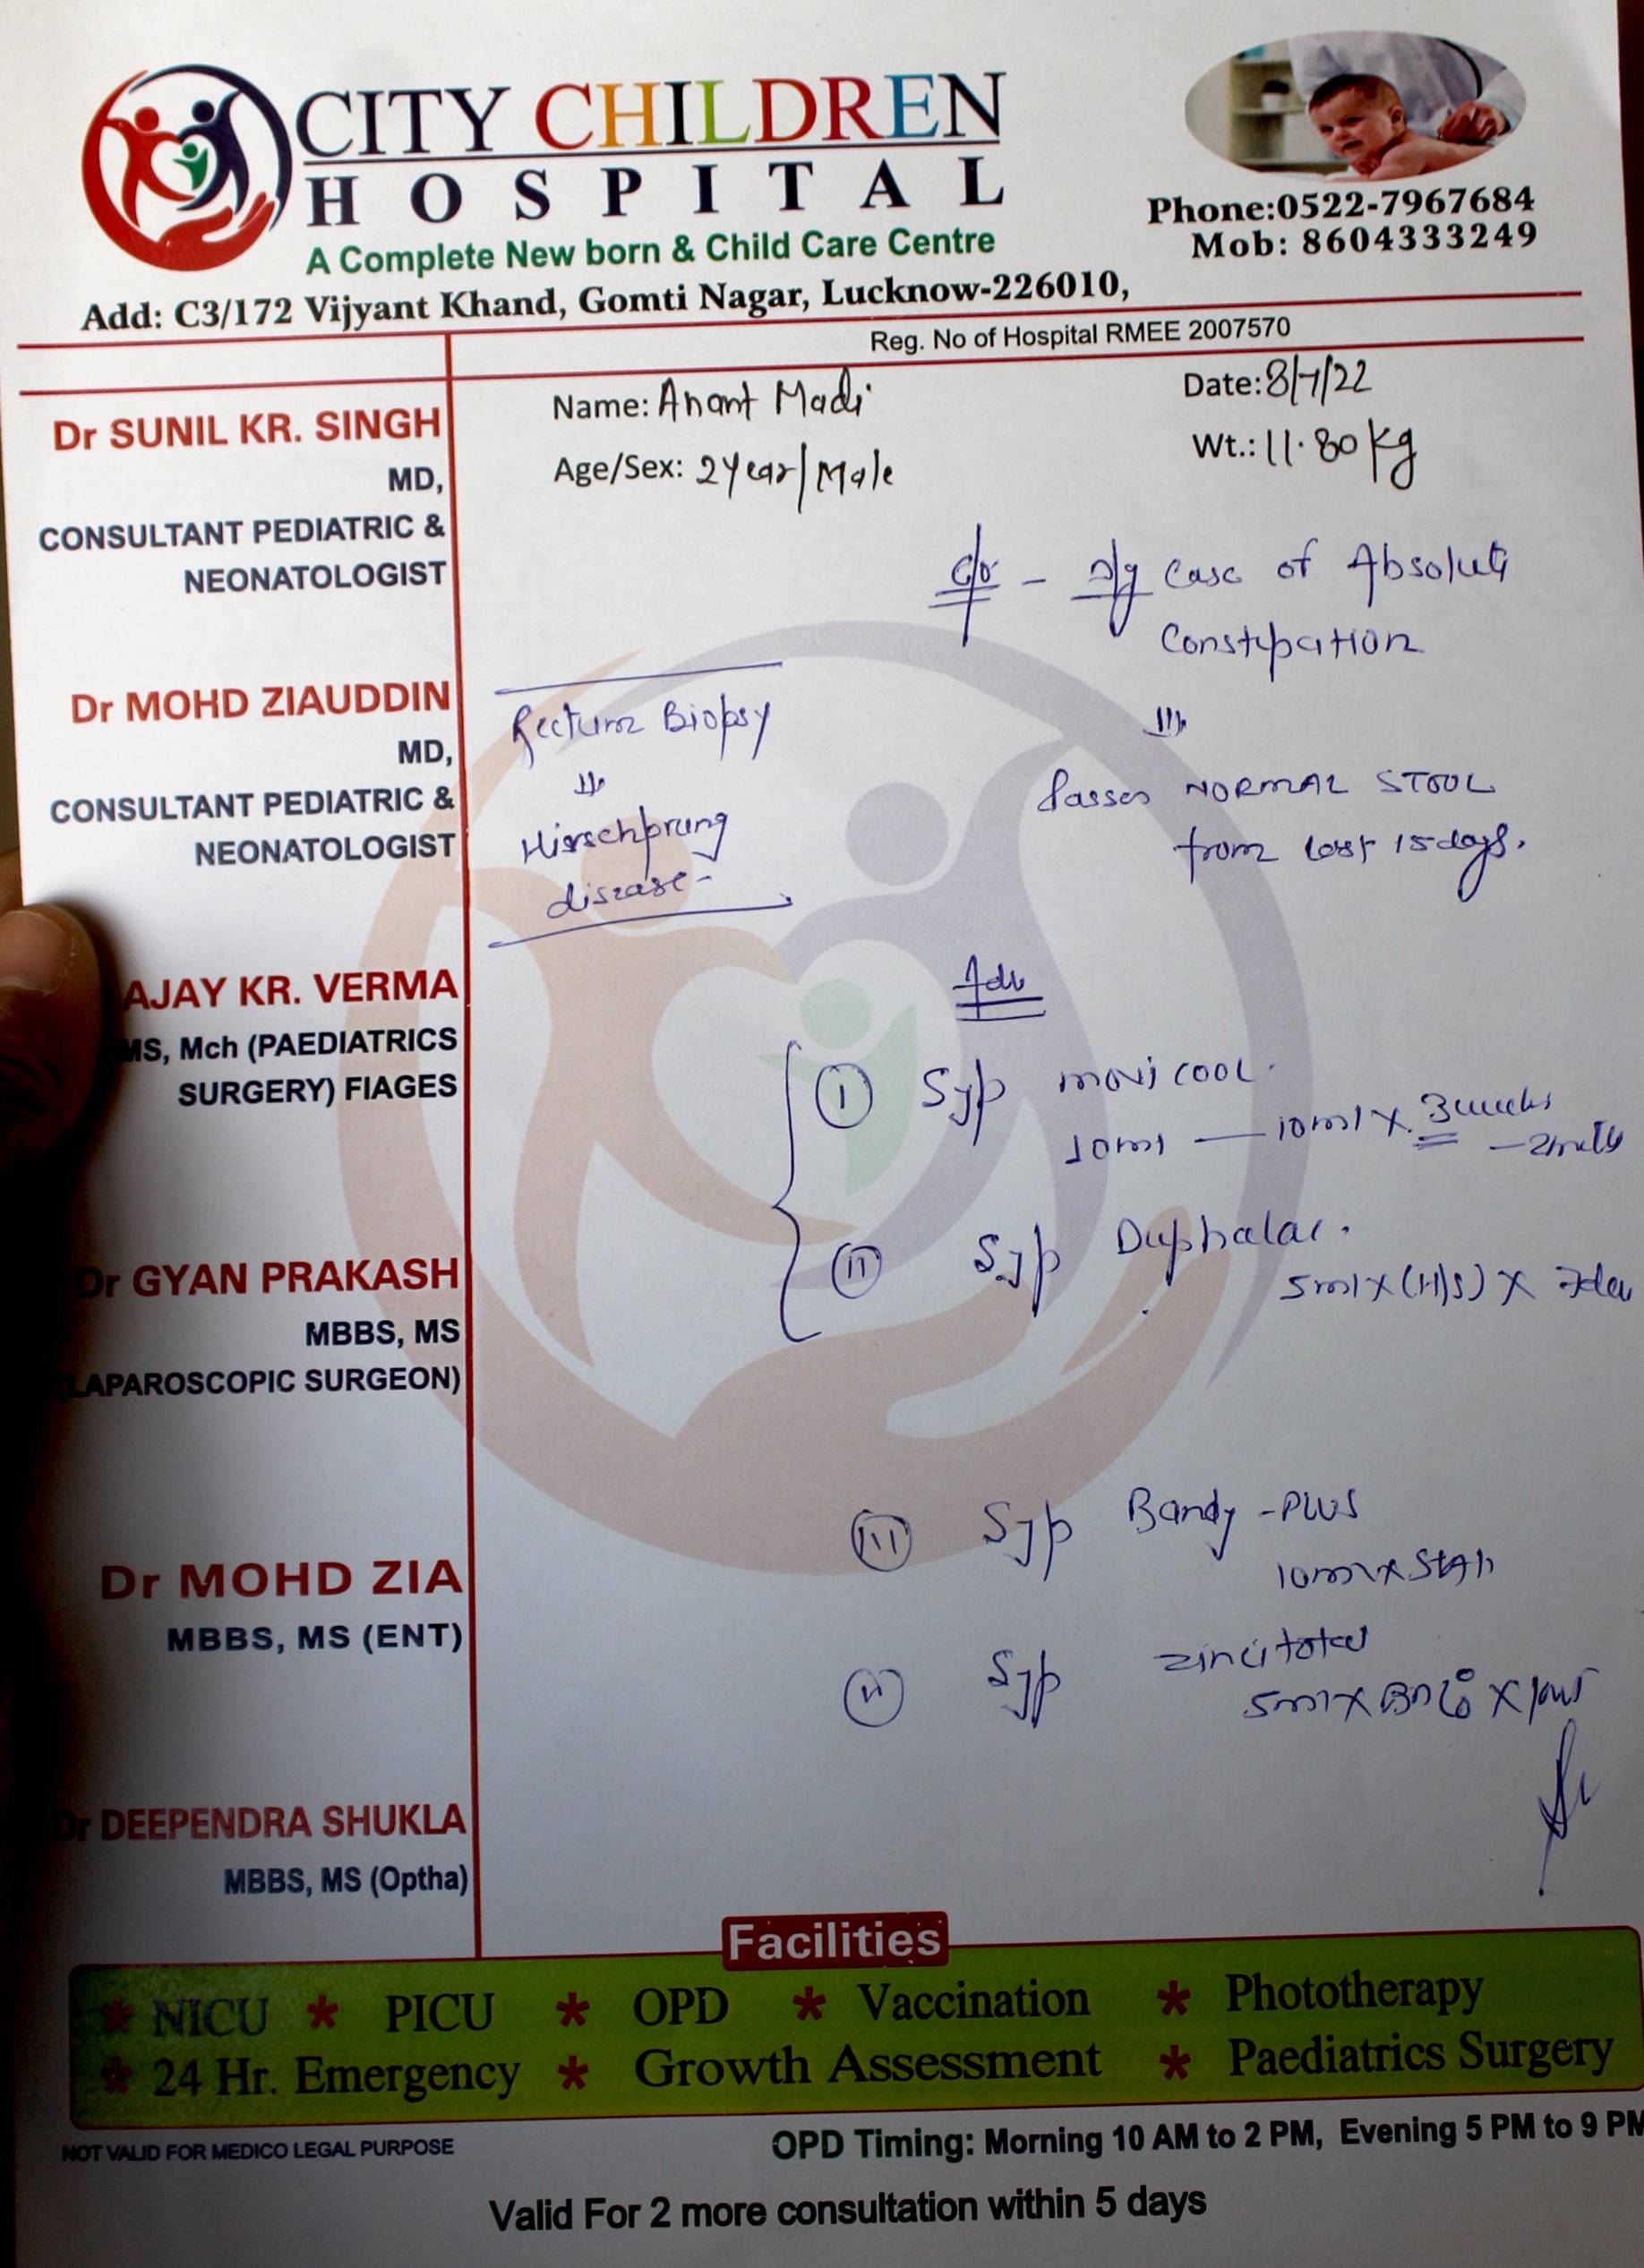 CITY CHILDREN
HOSPITAL
A Complete New born & Child Care Centre
Phone:0522-7967684
Mob: 8604333249
Add: C3/172 Vijyant Khand, Gomti Nagar, Lucknow-226010,
Reg. No of Hospital RMEE 2007570
Name: Anant Madi
Date: 8/7/22
Age/Sex: 2 Year/Male
Wt.: 11.80 kg
Dr SUNIL KR. SINGH
MD,
CONSULTANT PEDIATRIC &
NEONATOLOGIST
Dr MOHD ZIAUDDIN
MD,
CONSULTANT PEDIATRIC &
NEONATOLOGIST
AJAY KR. VERMA
MS, Mch (PAEDIATRICS
SURGERY) FIAGES
Dr GYAN PRAKASH
MBBS, MS
(LAPAROSCOPIC SURGEON)
Dr MOHD ZIA
MBBS, MS (ENT)
Dr DEEPENDRA SHUKLA
MBBS, MS (Optha)
c/o - case of Absolute
Constipation
Passes NORMAL STOOL
from last 15 days.
Rectum Biopsy
Hirschprung
disease -
Adv
(I) Syp movicool.
10ml — 10ml x 3 weeks
(II) Syp Duphalac.
5ml x (H/S) x 7 day
(III) Syp Bandy - PLUS
10ml x Stat
Syp zincitotal
5ml x
Facilities
* NICU * PICU * OPD * Vaccination * Phototherapy
* 24 Hr. Emergency * Growth Assessment * Paediatrics Surgery
NOT VALID FOR MEDICO LEGAL PURPOSE
OPD Timing: Morning 10 AM to 2 PM, Evening 5 PM to 9 PM
Valid For 2 more consultation within 5 days